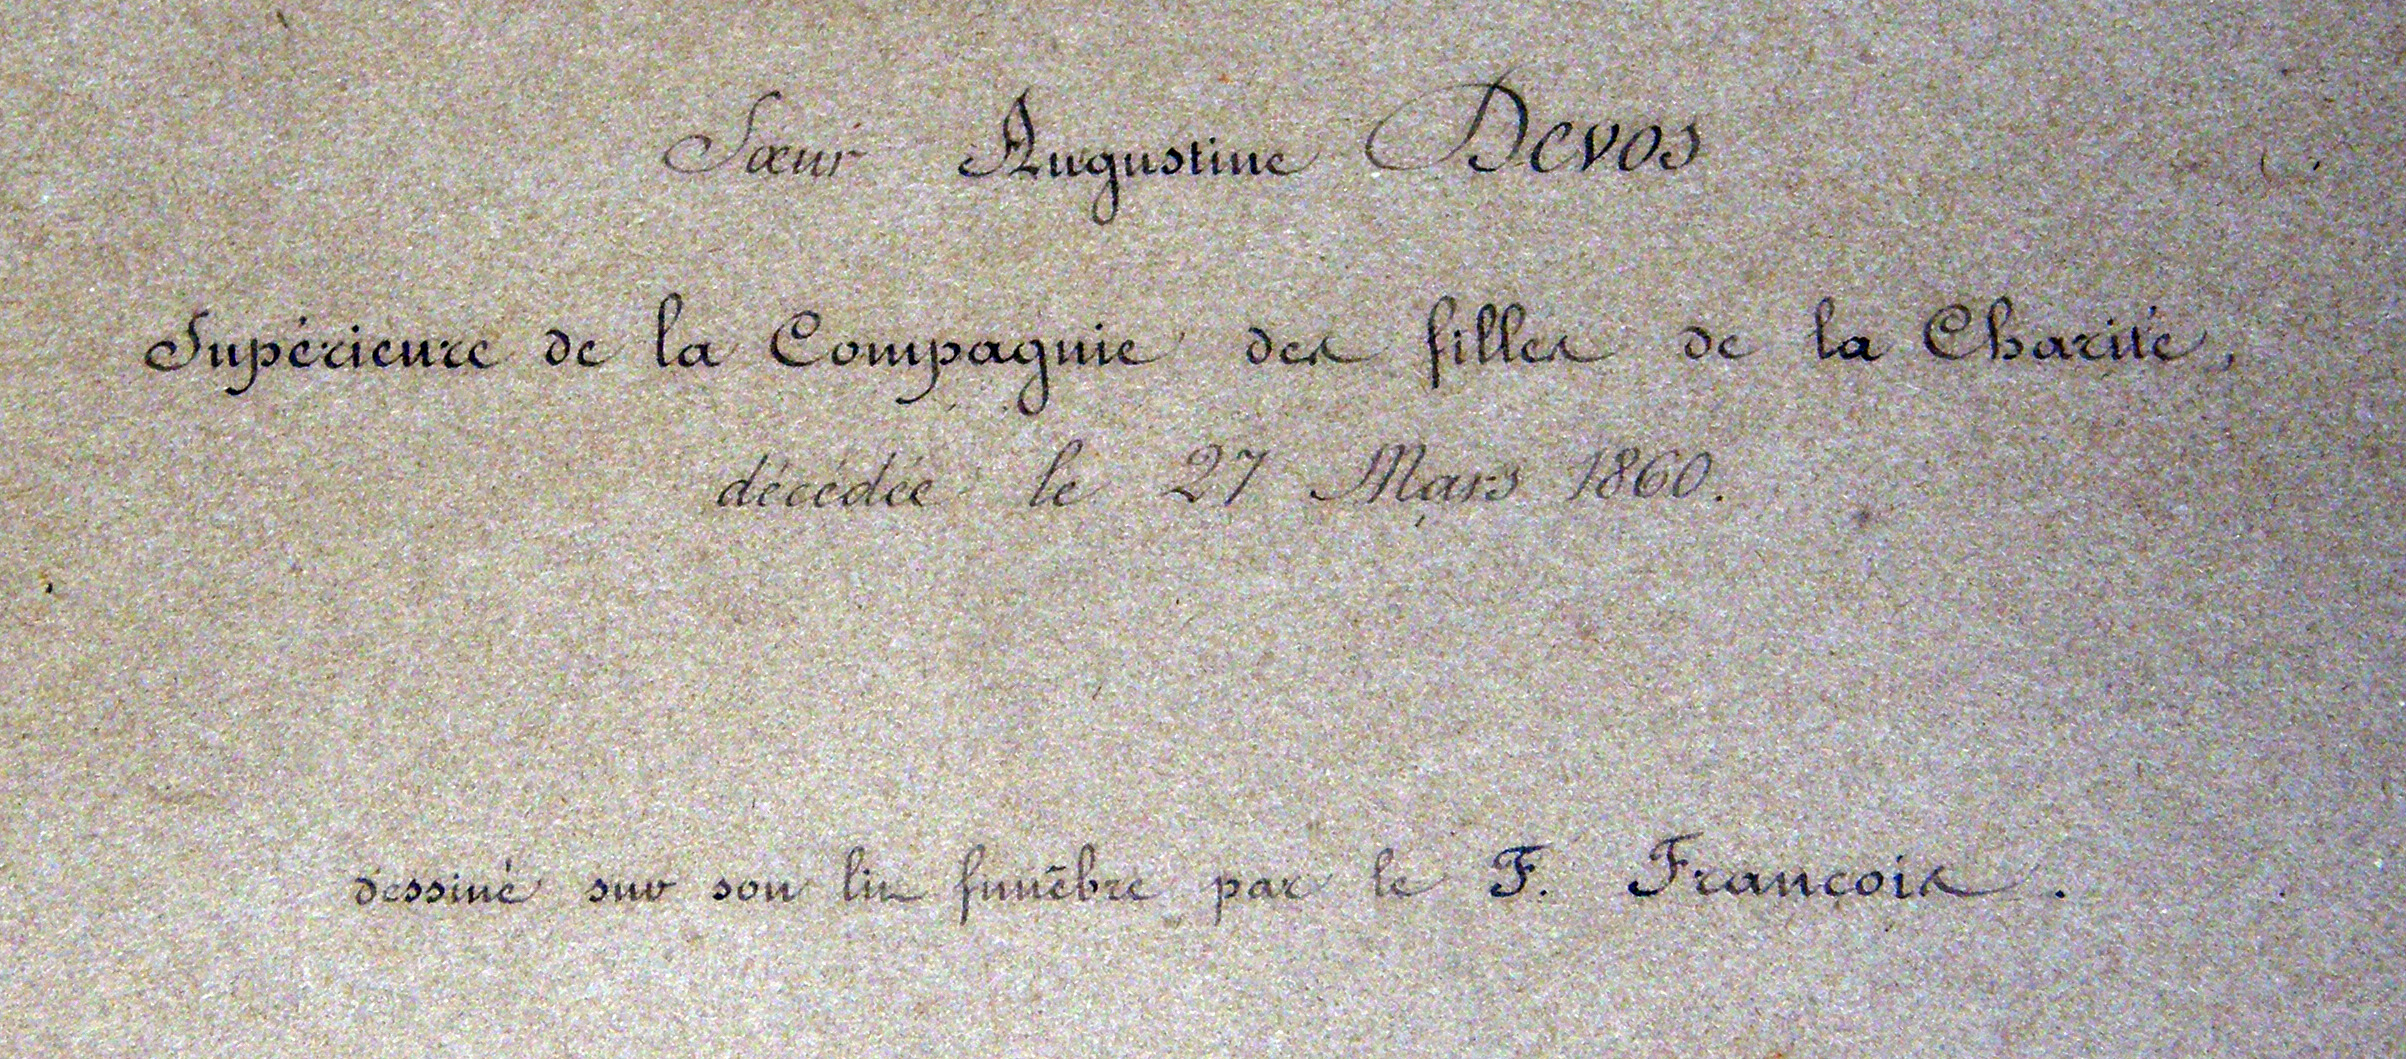 Sœur Augustine Devos
Supérieure de la Compagnie des filles de la Charité,
décédée le 27 Mars 1860.
dessiné sur son lit funèbre par le F. François.